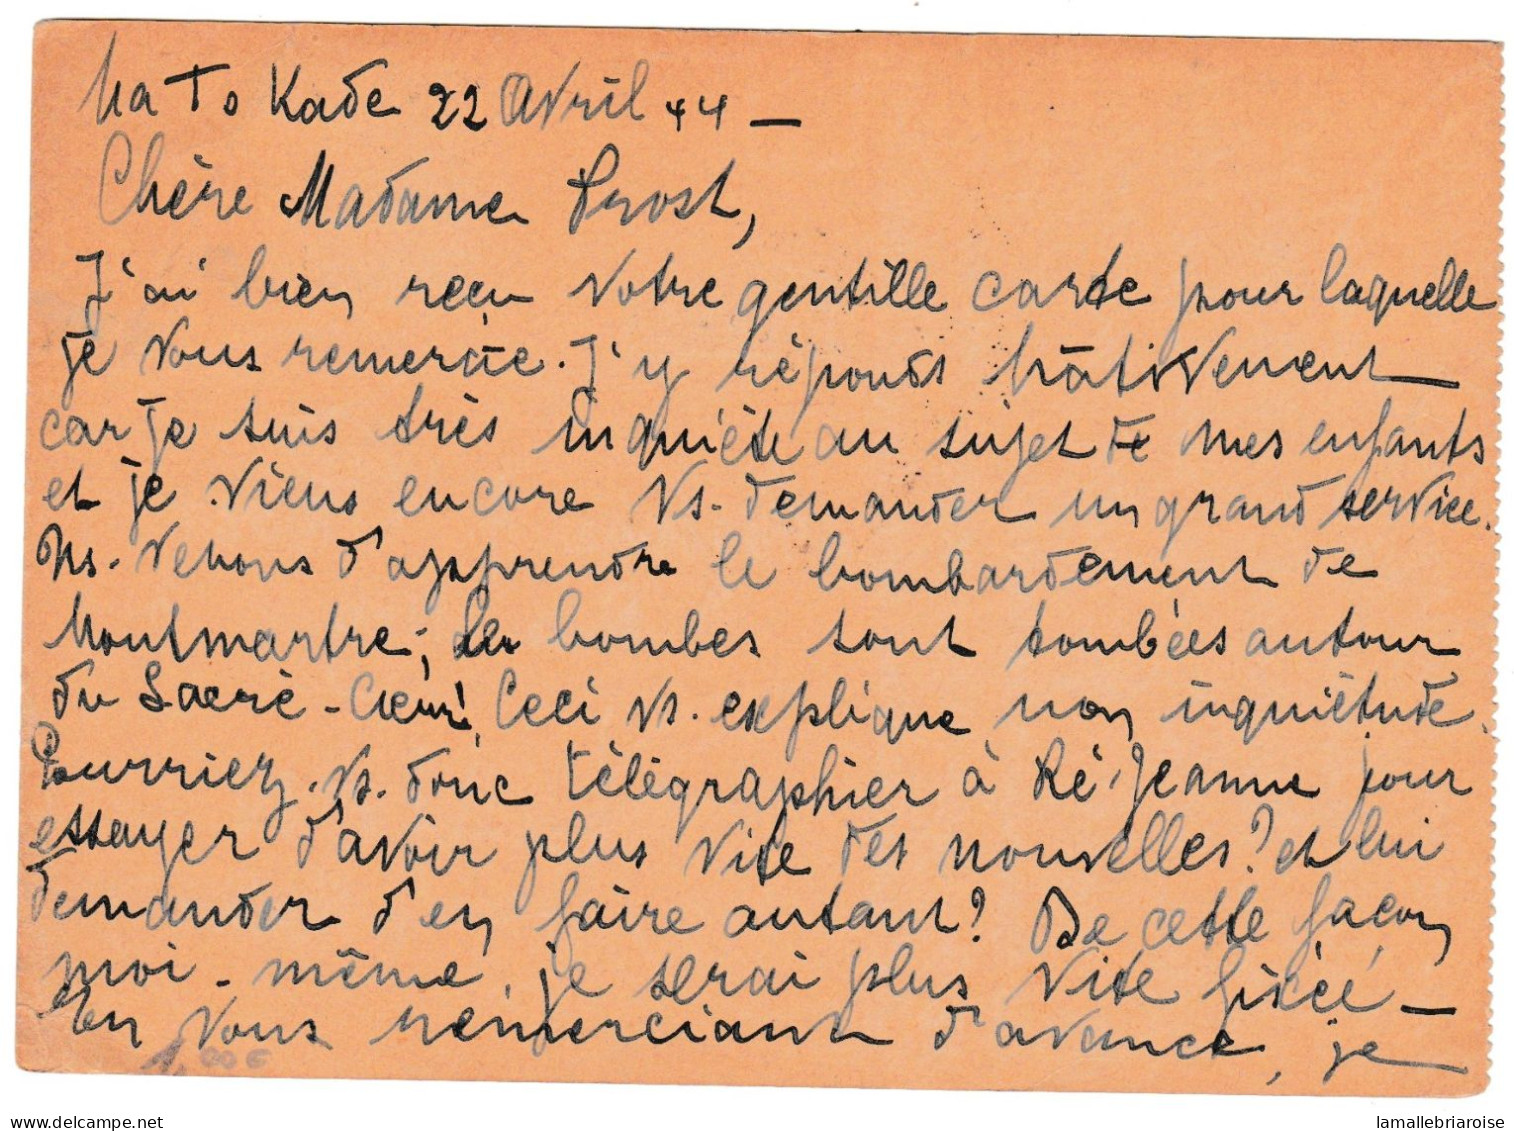 Ma To Kade 22 Avril 44 —
Chère Madame Prost,
J'ai bien reçu votre gentille carte pour laquelle
je vous remercie. J'y réponds hâtivement
car je suis très inquiète au sujet de mes enfants
et je viens encore vs. demander un grand service.
Ns. venons d'apprendre le bombardement de
Montmartre; les bombes sont tombées autour
du Sacré-Cœur! Ceci vs. explique mon inquiétude.
Pourriez-vs. donc télégraphier à Ré-Jeanne pour
essayer d'avoir plus vite des nouvelles? et lui
demander d'en faire autant? De cette façon
moi-même, je serai plus vite fixée —
En vous remerciant d'avance, je
1,00 €
lamallebriaroise
www.delcampe.net